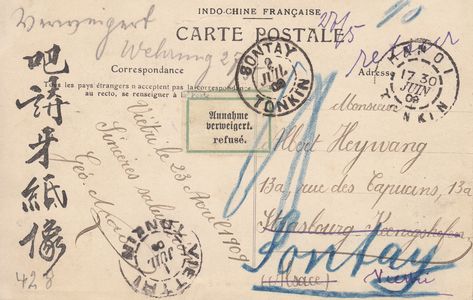 INDO-CHINE FRANÇAISE
CARTE POSTALE
Verweigert
Wehrung 27
27/5
retour
Correspondance
Adresse
Tous les pays étrangers n'acceptent pas la correspondance
au recto, se renseigner à la
SONTAY
2
JUIL
09
TONKIN
HANOI
17 30
JUIN
09
TONKIN
Annahme
verweigert.
refusé.
Viétri le 23 Avril 1909
Sinceres salut
Geo.
Monsieur
Albert Heywang
13a, rue des Capucins, 13a
Strasbourg Koenigshofen
(Alsace)
Sontay
Vietri
VIETTRI
JUIL
09
TONKIN
牙紙像
428